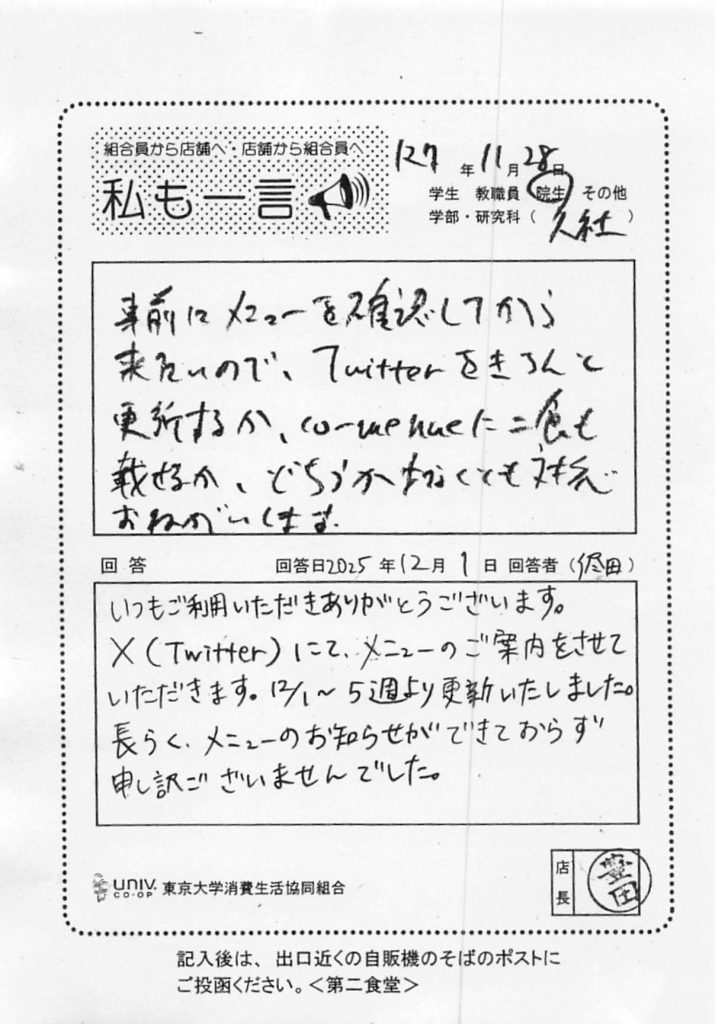 組合員から店舗へ・店舗から組合員へ
私も一言
R7年11月28日
学生 教職員 院生 その他
学部・研究科（人社）
事前にメニューを確認してから
来たいので、Twitterをきちんと
更新するか、co-menueに二食も
載せるか、どちらか少なくとも対応
おねがいします。
回答 回答日2025年12月1日 回答者（ 田）
いつもご利用いただきありがとうございます。
X（Twitter）にて、メニューのご案内をさせて
いただきます。12/1〜5週より更新いたしました。
長らく、メニューのお知らせができておらず
申し訳ございませんでした。
UNIV. CO-OP 東京大学消費生活協同組合
店長 豊田
記入後は、出口近くの自販機のそばのポストに
ご投函ください。＜第二食堂＞